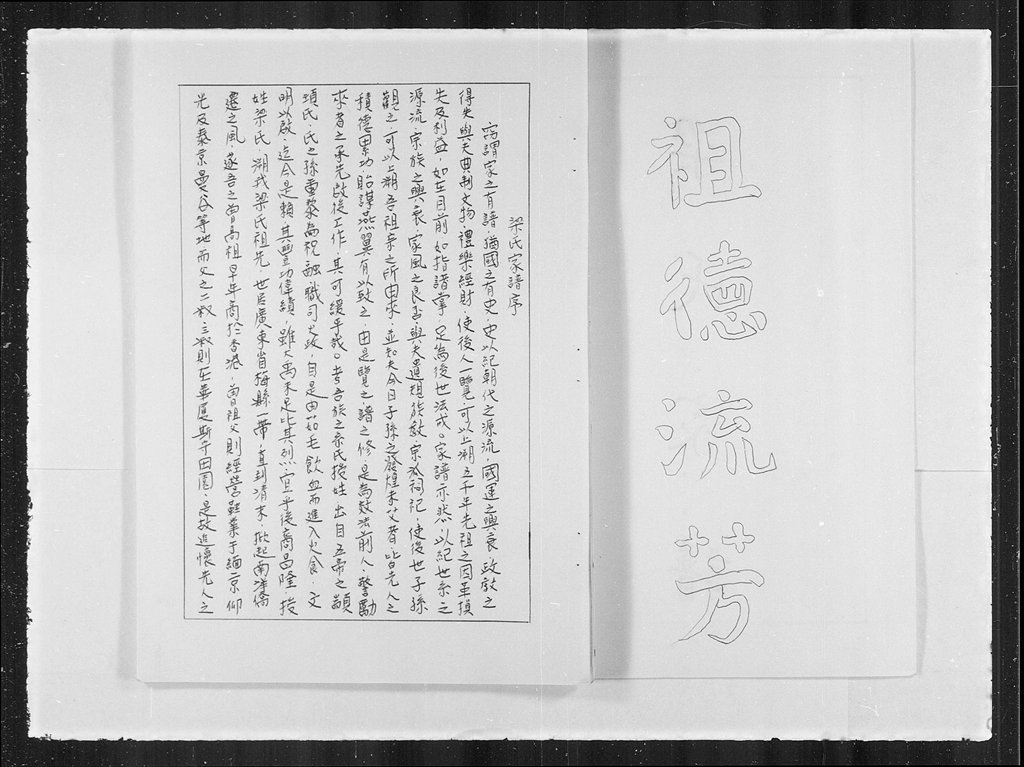 祖德流芳
梁氏家譜序
竊謂家之有譜，猶國之有史，史以紀朝代之源流，國運之興衰，政教之
得失與夫典制文物，禮樂經財，使後人一覽，可以上溯五千年先祖之因革損
失及利益，如在目前，如指諸掌，足為後世法戒。家譜亦然，以紀世系之
源流，宗族之興衰，家風之良否，與夫遺規族敘宗祠記，使後世子孫
觀之，可以上溯吾祖來之所由來，並知夫今日子孫之發煌未艾者，皆先人之
積德累功貽謀燕翼有以致之，由是覽之，譜之修，是為效法前人，警勵
來者之承先啟後工作，其可緩乎哉。考吾族之氏授姓，出自五帝之顓
頊氏，氏之孫重黎為祝融，職司火政，自是由茹毛飲血而進入火食，文
明以啟，迄今是賴，其豐功偉績，雖大禹未足比其烈，宜乎後裔昌隆，授
姓梁氏，溯我梁氏祖先，世居廣東省梅縣一帶，直到清末，掀起南洋僑
遷之風，遂吾之曾高祖早年商於香港，曾祖父則經營鞋業于緬京仰
光及泰京曼谷等地，而父之二叔三叔則在華厝斯守田園，是故追懷先人之